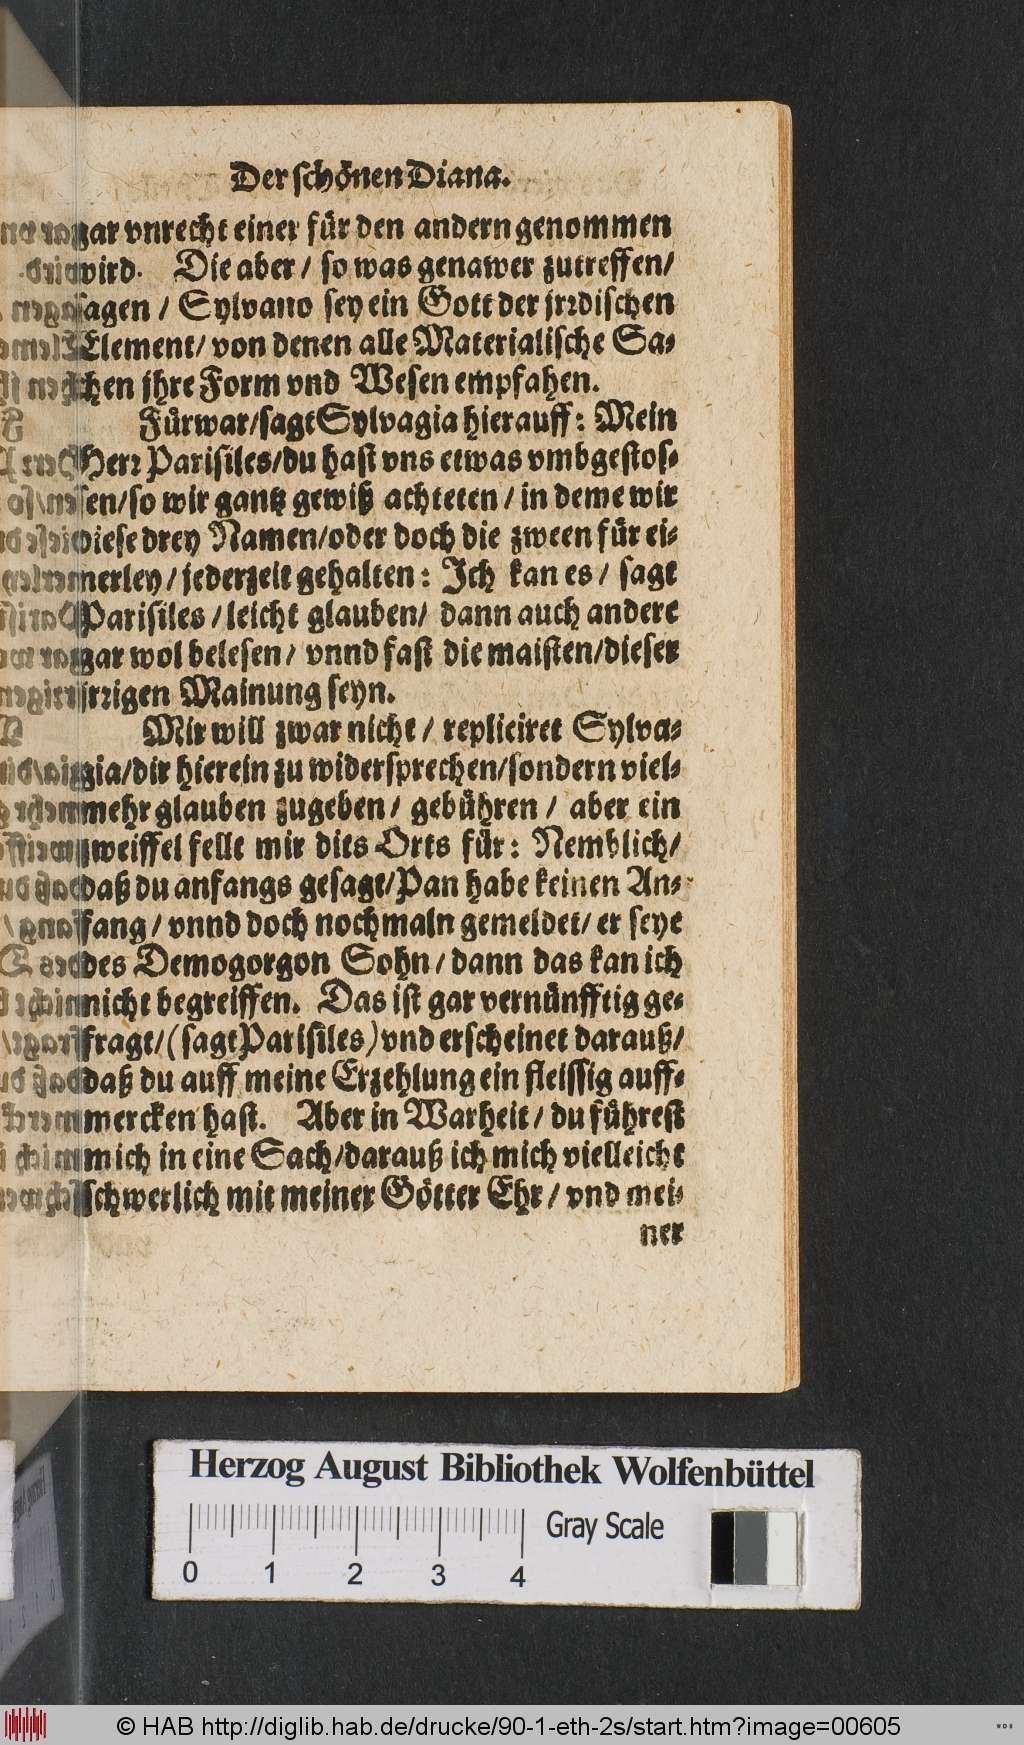 Der schönen Diana.
gar vnrecht einer für den andern genommen
wird. Die aber / so was genawer zutreffen/
sagen / Sylvano sey ein Gott der jrrdischen
Element/ von denen alle Materialische Sa-
chen jhre Form vnd Wesen empfahen.
Fürwar/sagt Sylvagia hierauff: Mein
Herr Parisiles/du hast vns etwas vmbgestos-
sen/so wir gantz gewiß achteten / in deme wir
diese drey Namen/oder doch die zween für ei-
nerley / jederzeit gehalten: Ich kan es / sagt
Parisiles / leicht glauben/ dann auch andere
gar wol belesen / vnnd fast die maisten/dieser
jrrigen Mainung seyn.
Mir will zwar nicht / repliciret Sylva-
gia/dir hierein zu widersprechen/sondern viel-
mehr glauben zugeben/ gebühren / aber ein
zweiffel fellt mir dits Orts für: Nemblich/
daß du anfangs gesagt/Pan habe keinen An-
fang / vnnd doch nochmaln gemeldet/ er seye
des Demogorgon Sohn / dann das kan ich
nicht begreiffen. Das ist gar vernünfftig ge-
fragt/(sagt Parisiles) vnd erscheinet darauß/
daß du auff meine Erzehlung ein fleissig auff-
mercken hast. Aber in Warheit / du führest
mich in eine Sach/darauß ich mich vielleicht
schwerlich mit meiner Götter Ehr / vnd mei-
ner
Herzog August Bibliothek Wolfenbüttel
Gray Scale
0 1 2 3 4
© HAB http://diglib.hab.de/drucke/90-1-eth-2s/start.htm?image=00605